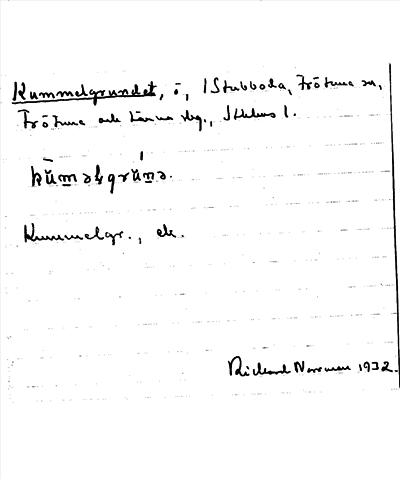 Kummelgrundet, ö, 1 Stubboda, Frötuna sn,
Frötuna och Länna skg., Sthlms l.
kŭm̲əḷgrŭn̲ə.
Kummelgr., ek.
Rickard Norrman 1932.